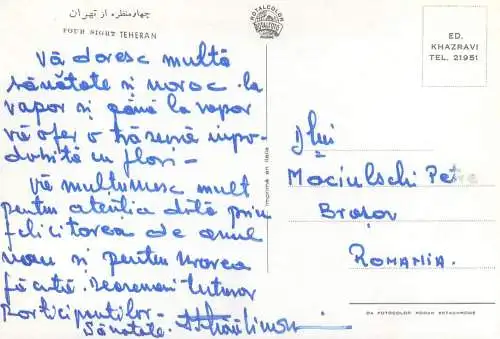 چهار منظره از تهران
FOUR SIGHT TEHERAN
ROTALCOLOR
ROTALFOTO
MILANO
ED.
KHAZRAVI
TEL. 21951
Vă doresc multă
sănătate și noroc. la
vapor și până la vapor
vă ofer o trăsură împo-
dobită cu flori -
Vă mulțumesc mult
pentru atenția dată prin
felicitarea de anul
nou și pentru urarea
făcută. Asemeni tuturor
participanților -
Sănătate.
Imprimé en Italie
Dlui
Maciulschi Petre
Brașov
ROMANIA.
DA FOTOCOLOR KODAK EKTACHROME